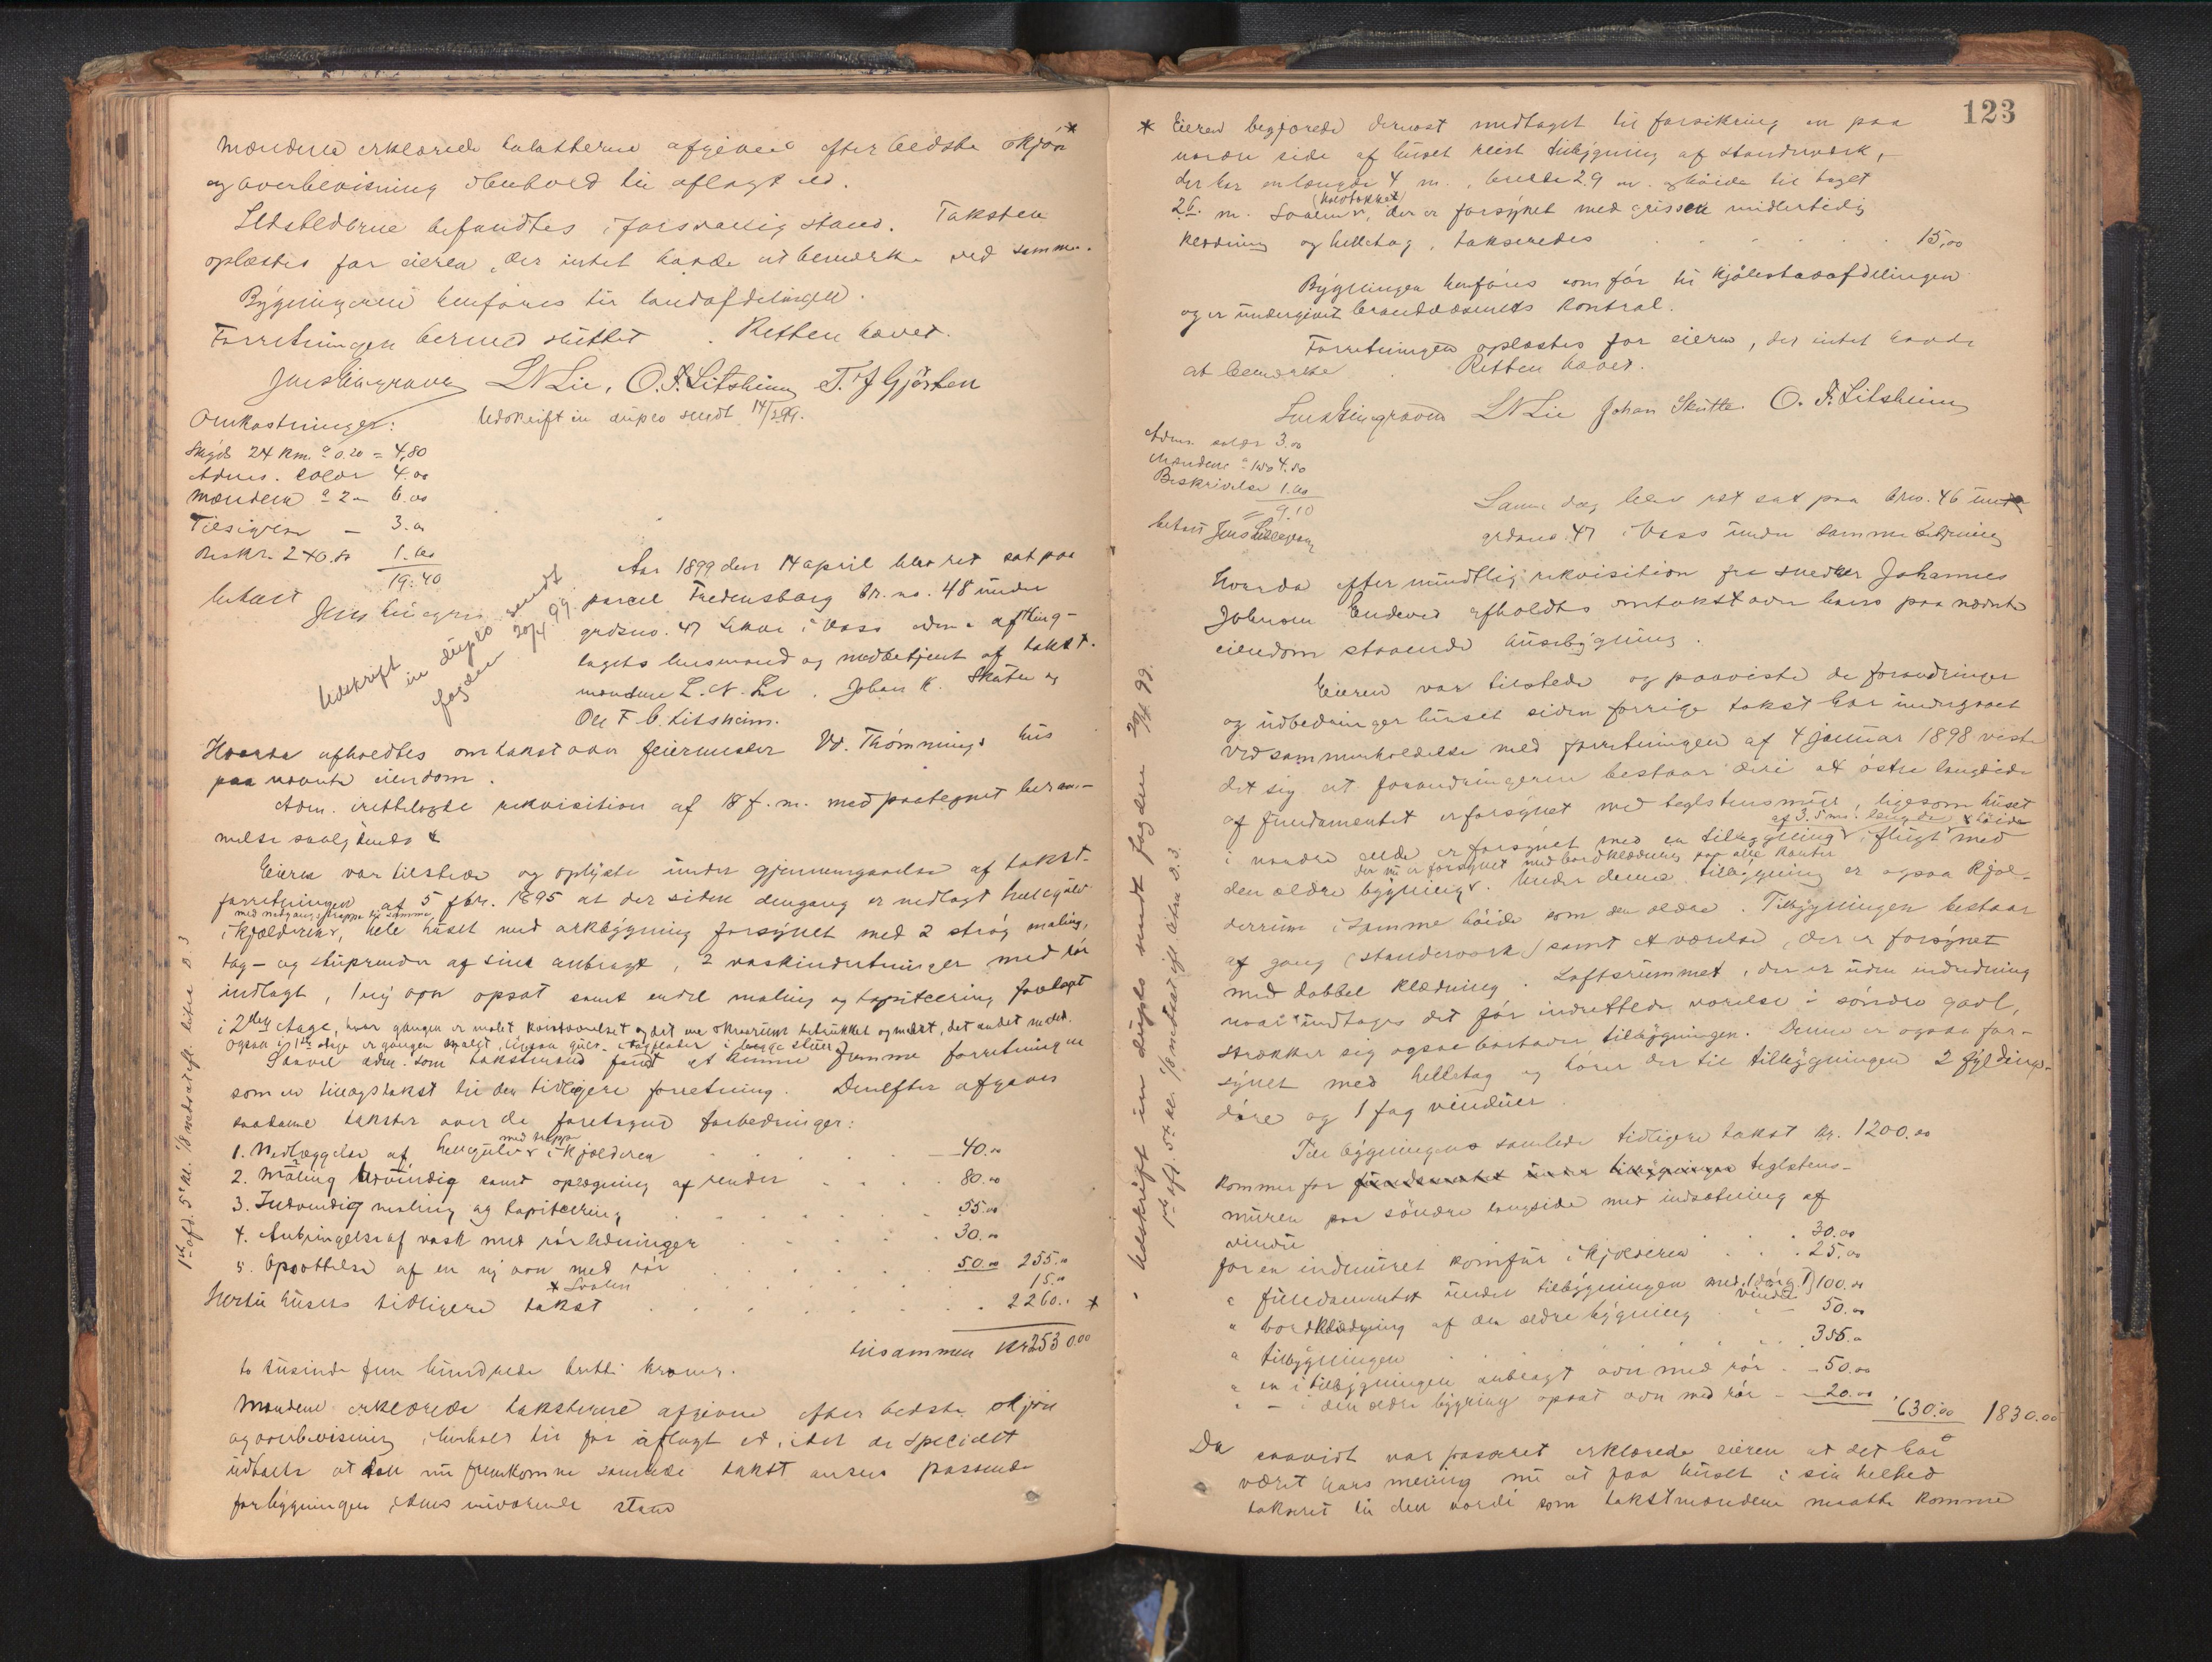 Mændene erklærede taksterne afgivne efter bedste skjøn
og overbevisning i henhold til aflagt ed.
Ildstederne befandtes i forsvarlig stand. Taksten
oplæstes for eieren, der intet havde at bemerke ved samme.
Bygningerne henføres til landafdelingen.
Forretningen hermed sluttet. Retten hævet.
Jens Lingrave L N Lie, O. F. Litsheim T. J Gjøsten
Omkostninger:
Udskrift in duplo sendt 14/3 99.
Skyds 24 km. a 0.20 = 4,80
Adms. salær 4.00
Mændene a 2 — 6.00
Tilsigelse — 3.00
Beskr. 2 x 0.80 1.60
19.40
betalt Jens Lingrave
Udskrift in duplo sendt fogden 20/4 99.
Aar 1899 den 14 april blev ret sat paa
parcel Fredensborg br. no. 48 under
grdsno. 47 i Voss adm. af thing-
lagets lensmand og medbetjent af takst-
mændene L. N. Lie, Johan K. Skutle og
Ole F. Litsheim.
Hvorda afholdtes omtakst over feiermester Vd. Thømmings hus
paa nævnte eiendom.
Adm. irettelagde rekvisition af 18 f. m. med paategnet beram-
melse saalydende
Eieren var tilstede og oplyste under gjennemgaaelse af takst-
forretningen af 5 fbr. 1895 at der siden dengang er nedlagt hellegulv
med nedgangstrappe til samme
i kjælderen, hele huset med arkbygning forsynet med 2 strøg maling,
tag- og stuprender af sink anbragt, 2 vaskindretninger med rør
indlagt, 1 ny ovn opsat samt endel maling og tapetsering foretaget
i 2den etage, hvor gangen er malet
ogsaa i 1ste etage er gangen malet,
Saavel adm. som takstmænd fandt at kunne fremme forretningen
som en tillægstakst til den tidligere forretning. Derefter afgaves
saadanne takster over de foretagne forbedringer:
med trappe
1. Nedlæggelse af hellegulv i kjælderen 40.00
2. Maling udvendig samt oplægning af render 80.00
3. Indvendig maling og tapetsering 55.00
4. Anbringelse af vask med rørledninger 30.00
5. Opsættelse af en ny ovn med rør 50.00 255.00
* Svalen 15.00
Hertil husets tidligere takst 2260.. *
tilsammen Kr 2530.00
to tusinde fem hundrede tretti kroner.
Mændene erklærede taksterne afgivne efter bedste skjøn
og overbevisning i henhold til før aflagt ed, idet de specielt
udtalte at den nu fremkomne samlede takst ansees passende
for bygningen i dens nuværende stand *
1ste afd. 5te kl. 1/8 nedsat eft. litra D 3
123
* Eieren begjærede dernæst medtaget til forsikring en paa
nordre side af huset reist tilbygning af standerværk,
der har en længde 4 m., bredde 2.9 m. og høide til taget
2.6. m. Svalen, der er forsynet med midlertidig
klædning og helletag, takseredes 15.00
Bygningen henføres som før til kjøbstadafdelingen
og er undergivet brandvæsenets kontrol.
Forretningen oplæstes for eieren, der intet havde
at bemerke. Retten hævet.
Jens Lingrave L N Lie Johan Skutle. O. F. Litsheim
Adms. salær 3.00
Mændene a 1.50 4.50
Beskrivelse 1.60
= 9.10
betalt Jens Lingrave
Samme dag blev ret sat paa brno. 46 under
grdsno. 47 i Voss under samme betjening
Hvorda efter mundtlig rekvisition fra snedker Johannes
Johnsen Endeved afholdtes omtakst over hans paa nævnte
eiendom staaende husebygning.
Eieren var tilstede og paaviste de forandringer
og udbedringer huset siden forrige takst har undergaaet
Ved sammenholdelse med forretningen af 4 januar 1898 viste
det sig at forandringerne bestaar deri at østre langside
af fundamentet er forsynet med teglstensmur, ligesom huset
af 3.5 m. længde & høide
i nordre ende er forsynet med en tilbygning i flugt med
der nu er forsynet med bordklædning paa alle kanter
den ældre bygning. Under denne tilbygning er ogsaa kjæl-
derrum i samme høide som den ældre. Tilbygningen bestaar
af gang (standerværk) samt et værelse, der er forsynet
med dobbel klædning. Loftsrummet, der er uden indredning
naar undtages det før indrettede værelse i søndre gavl,
strækker sig ogsaa bortover tilbygningen. Denne er ogsaa for-
synet med helletag og hører der til tilbygningen 2 fyldings-
døre og 1 fag vinduer.
Til bygningens samlede tidligere takst kr. 1200.00
kommer for fundamentet under tilbygningen teglstens-
muren paa søndre langside med indsætning af
vindu 30.00
for en indmuret komfur i kjælderen 25.00
" fundamentet under tilbygningen med (1 dør og 1 vindu) 100.00
" bordklædning af den ældre bygning 50.00
" tilbygningen 355.00
" en i tilbygningen anbragt ovn med rør 50.00
" — i den ældre bygning opsat ovn med rør 20.00 630.00 1830.00
Da saavidt var passeret erklærede eieren at det har
været hans mening nu at faa huset i sin helhed
takseret til den værdi som takstmændene maatte komme
Udskrift in duplo sendt fogden 20/4 99.
1ste afd. 5te kl. 1/8 nedsat eft. litra D. 3.